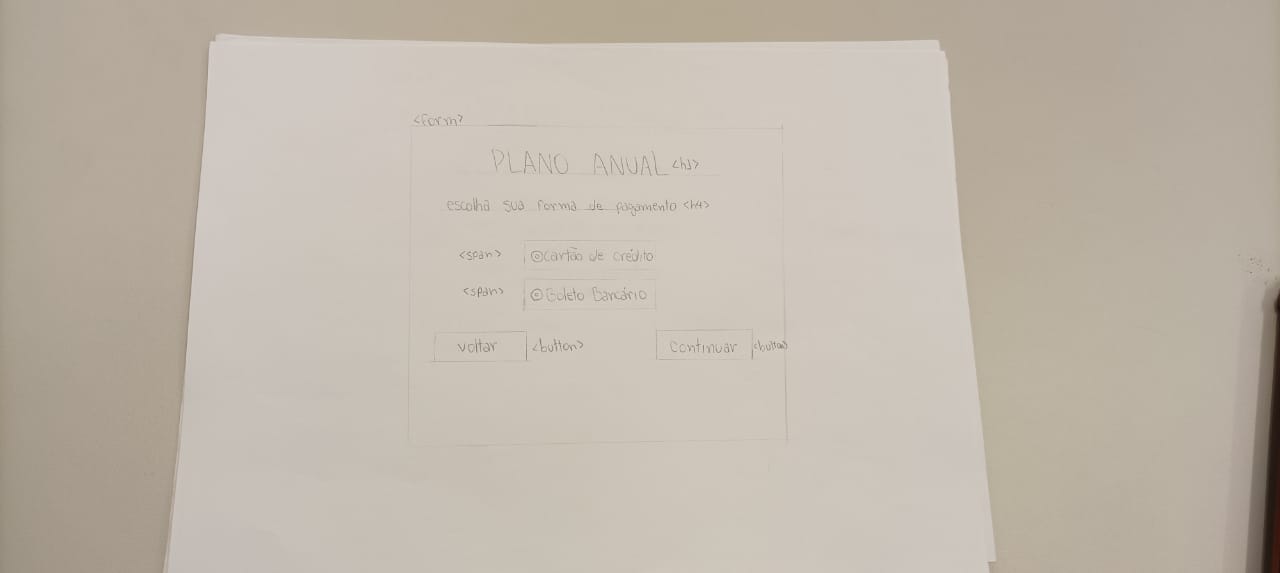 <form>
PLANO ANUAL <h1>
escolha sua forma de pagamento <h4>
<span> Cartão de crédito
<span> Boleto Bancário
Voltar <button> Continuar <button>